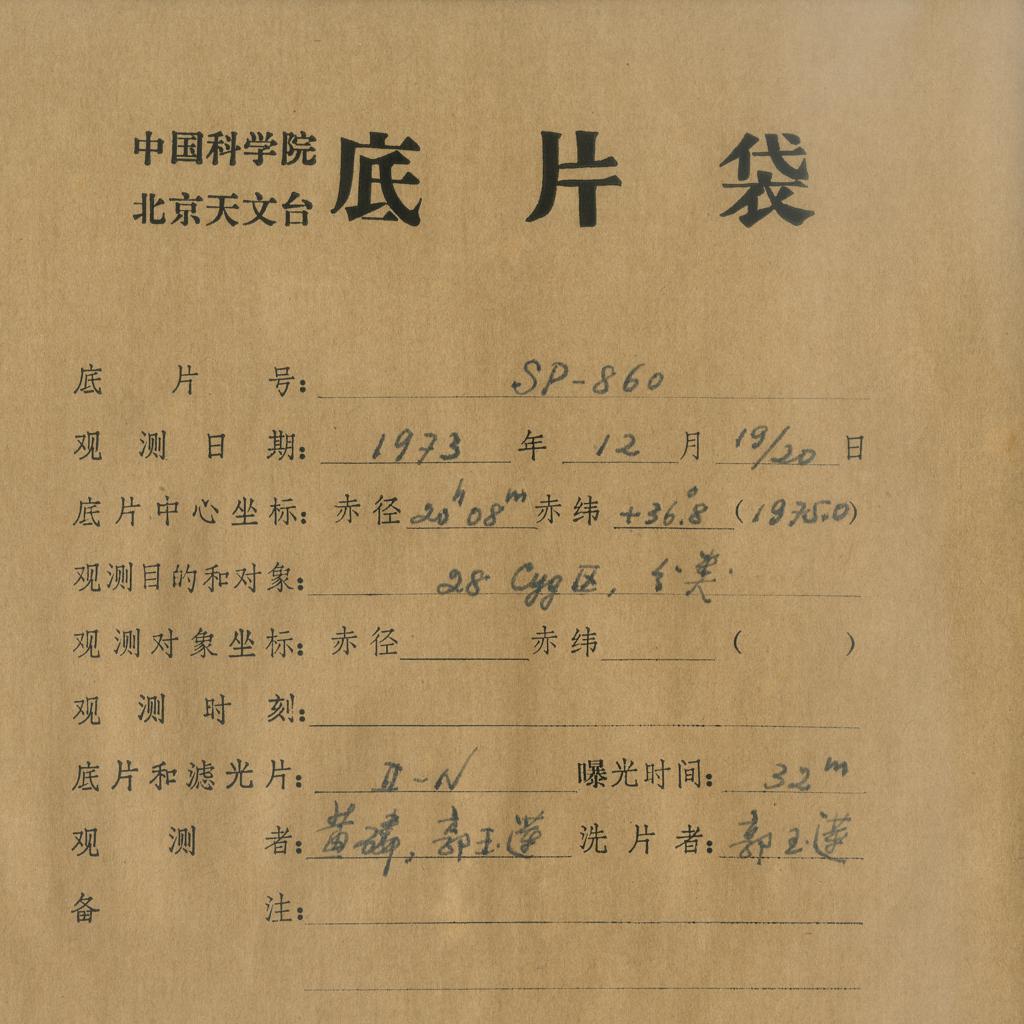 中国科学院
北京天文台 底片袋
底片号: SP-860
观测日期: 1973 年 12 月 19/20 日
底片中心坐标: 赤径 20ʰ08ᵐ 赤纬 +36°.8 (1975.0)
观测目的和对象: 28 Cyg 区, 分类.
观测对象坐标: 赤径 赤纬 ( )
观测时刻:
底片和滤光片: II-N 曝光时间: 32ᵐ
观测者: 黄磷, 郭玉莲 洗片者: 郭玉莲
备注: